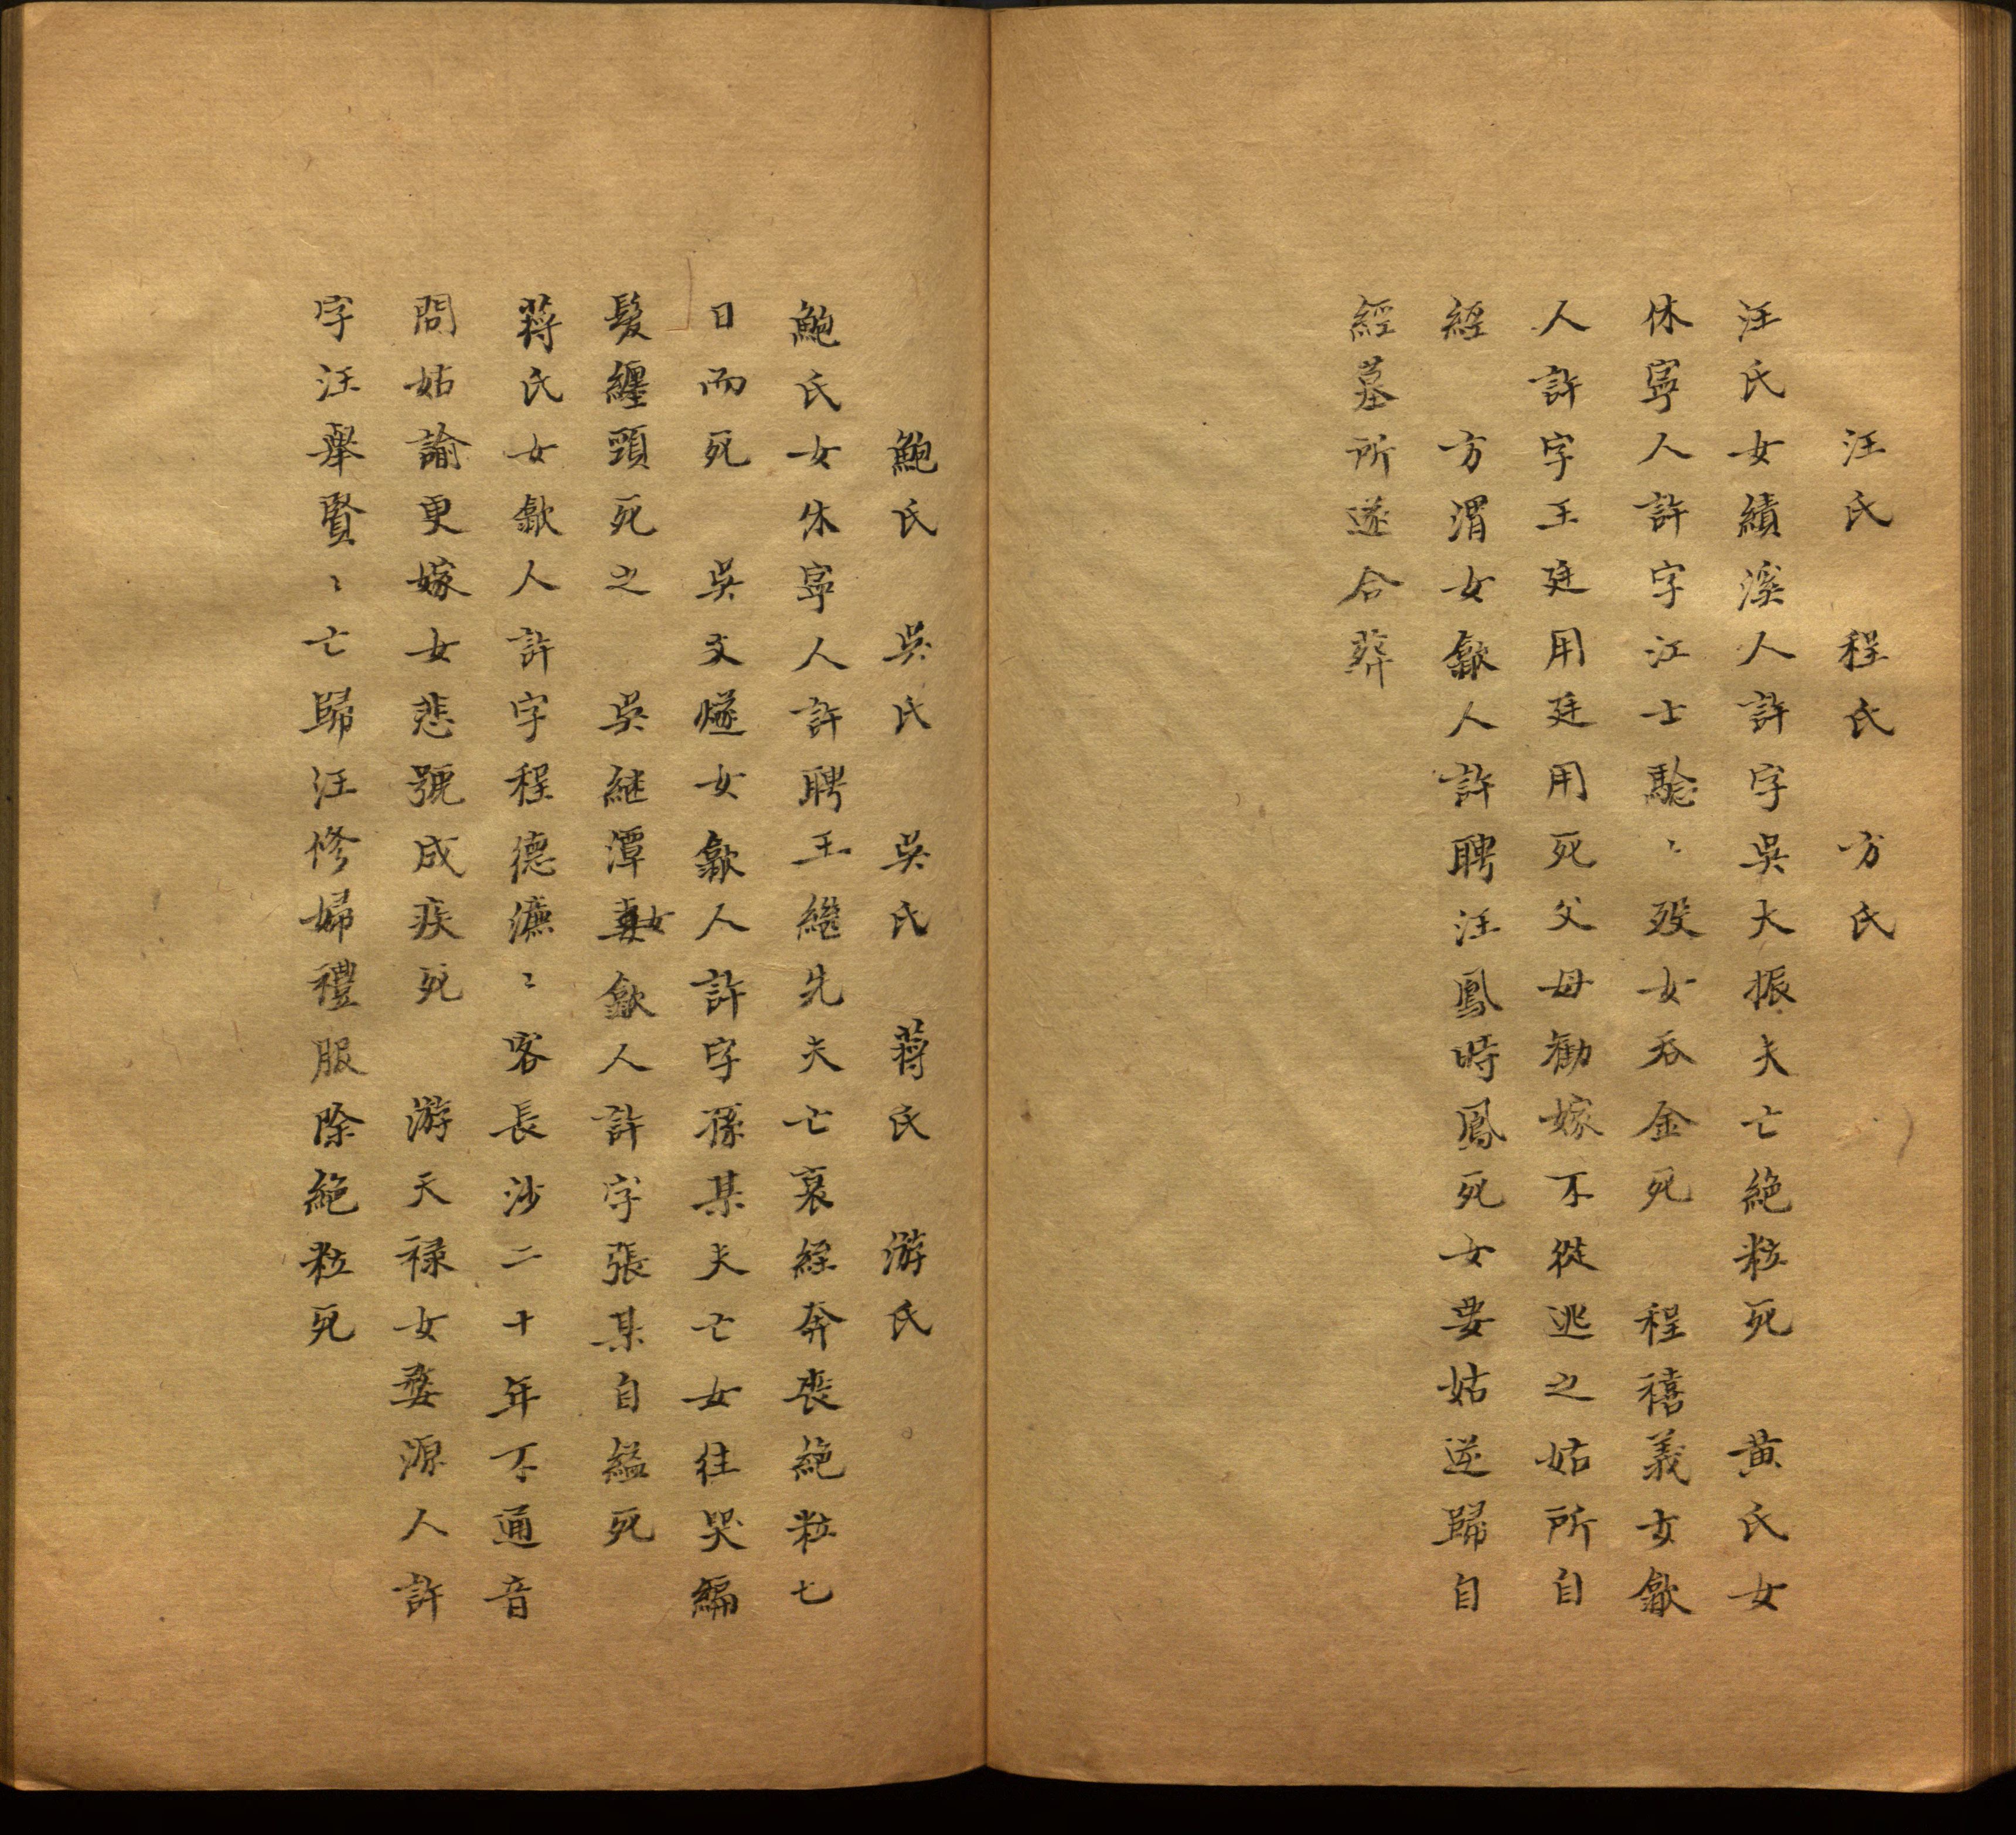 汪氏　程氏　方氏
汪氏女績溪人許字吳大振夫亡絶粒死　黄氏女
休寧人許字江士騐〻歿女吞金死　程禧義女歙
人許字王廷用廷用死父母勸嫁不從逃之姑所自
經　方渭女歙人許聘汪鳳時鳳死女要姑逆歸自
經墓所遂合葬
鮑氏　吳氏　吳氏　蔣氏　游氏
鮑氏女休寧人許聘王繼先夫亡衰絰奔喪絶粒七
日而死　吳文燧女歙人許字孫某夫亡女往哭編
髮纏頸死之　吳継潭女歙人許字張某自縊死
蔣氏女歙人許字程德濂〻客長沙二十年不通音
問姑諭更嫁女悲號成疾死　游天禄女婺源人許
字汪舉賢〻亡歸汪修婦禮服除絶粒死